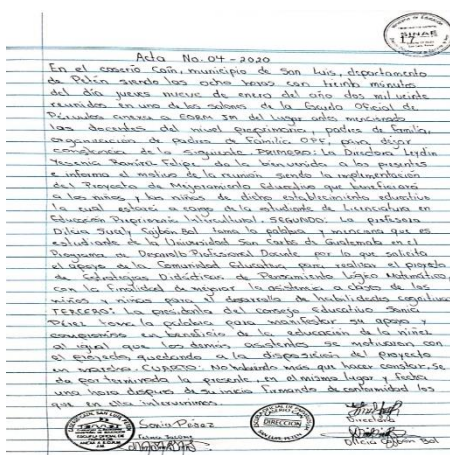 Acta No. 04 - 2020
En el caserío Caín, municipio de San Luis, departamento
de Petén siendo las ocho horas con treinta minutos
del día jueves nueve de enero del año dos mil veinte
reunidos en uno de los salones de la Escuela Oficial de
Párvulos anexa a EORM JM del lugar antes mencionado
los docentes del nivel preprimario, padres de familia,
organización de padres de Familia OPF, para dejar
constancia de lo siguiente PRIMERO: La Directora Leydin
Yesenia Ramírez Felipe da la bienvenida a los presentes
e informa el motivo de la reunión siendo la implementación
del Proyecto de Mejoramiento Educativo que beneficiará
a los niños y las niñas de dicho establecimiento educativo
la cual estará a cargo de la estudiante de Licenciatura en
Educación Preprimaria Intercultural. SEGUNDO: La profesora
Dilcia Suraly Cajbón Bol toma la palabra y menciona que es
estudiante de la Universidad San Carlos de Guatemala en el
Programa de Desarrollo Profesional Docente por lo que solicita
el apoyo de la Comunidad Educativa, para realizar el proyecto
de Estrategias Didácticas de Pensamiento Lógico Matemático,
con la finalidad de mejorar la asistencia a clases de los
niños y niñas para el desarrollo de habilidades cognitivas
TERCERO: La presidenta del consejo educativo Sonia
Pérez toma la palabra para manifestar su apoyo y
compromiso en beneficio de la educación de la niñez
al igual que los demás asistentes se motivaron con
el proyecto quedando a la disposición del proyecto
en marcha. CUARTO: No habiendo más que hacer constar, se
da por terminada la presente, en el mismo lugar y fecha
una hora después de su inicio firmando de conformidad los
que en ella intervenimos.
Sonia Pérez
Directora
DIRECCION
Dilcia Cajbón Bol